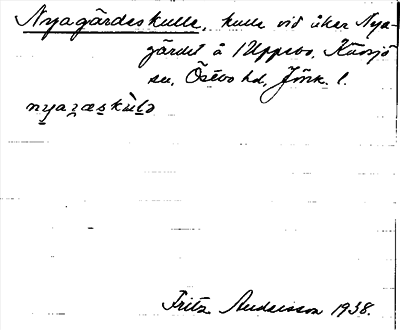 Nyagärdeskulle, kulle vid åker Nya-
gärdet å 1 Uppebo, Kävsjö
sn, Östbo hd, Jönk. l.
nyaʒæskùlə
Fritz Andersson 1938.